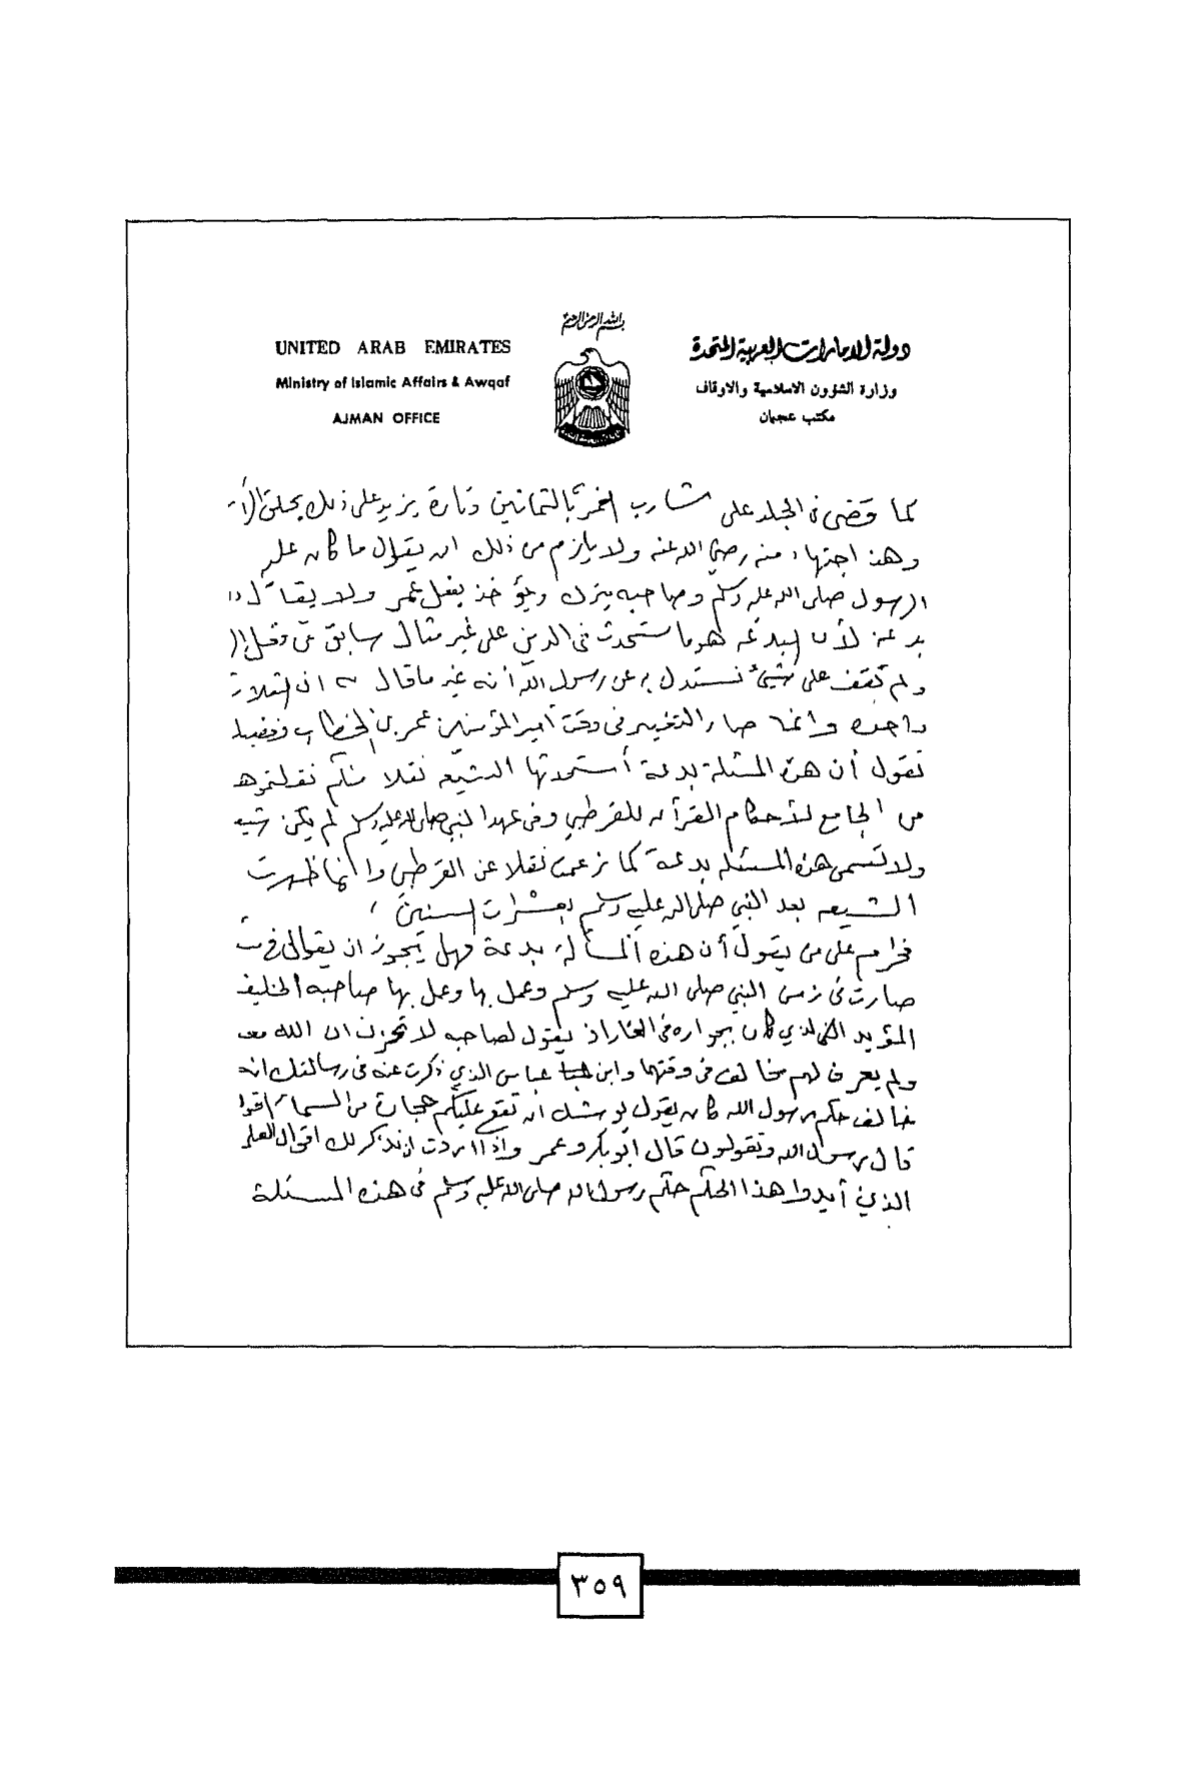 بسم الله الرحمن الرحيم
UNITED ARAB EMIRATES
Ministry of Islamic Affairs & Awqaf
AJMAN OFFICE
دولة الامارات العربية المتحدة
وزارة الشؤون الاسلامية والاوقاف
مكتب عجمان
كما قضى في الجلد على شارب الخمر بالثمانين وتارة يزيد على ذلك بحلق
وهذا اجتهاد منه رضي الله عنه ولا يلزم من ذلك ان يقول ما كان عليه
الرسول صلى الله عليه وسلم وصاحبه يترك ويؤخذ بفعل عمر ولا يقال
بدعة لأن البدعة هو ما ستحدث في الدين على غير مثال سابق
ولم تقف على شيئ نستدل به عن رسول الله أنه غير ما قال به ان الثلاث
واحده وانما صار التغيير في وقت أمير المؤمنين عمر بن الخطاب
تقول أن هذه المسئلة بدعة أستحدثتها الشيعه نقلا منكم نقلتموه
من الجامع لأحكام القرآن للقرطبي وفي عهد النبي صلى الله عليه وسلم لم يكن شيعه
ولا تسمى هذه المسئله بدعة كما زعمت نقلا عن القرطبي وانما ظهرت
الشيعه بعد النبي صلى الله عليه وسلم بعشرات السنين
فحرام على من يقول أن هذه المسألة بدعة فهل يجوز ان يقال
صارت في زمن النبي صلى الله عليه وسلم وعمل بها وعمل بها صاحبه الخليفه
المؤيد الذي كان بجواره في الغار اذ يقول لصاحبه لا تحزن ان الله معنا
ولم يعرف لهم مخالف في وقتهما وابن عباس الذي ذكرت عنه في رسالتك انه
خالف حكم رسول الله كان يقول يوشك ان تقع عليكم حجارة من السماء اقول
قال رسول الله وتقولون قال ابوبكر وعمر واذا اردت ان نذكر لك اقوال العلم
الذين أيدوا هذا الحكم حكم رسول الله صلى الله عليه وسلم في هذه المسئلة
٣٥٩